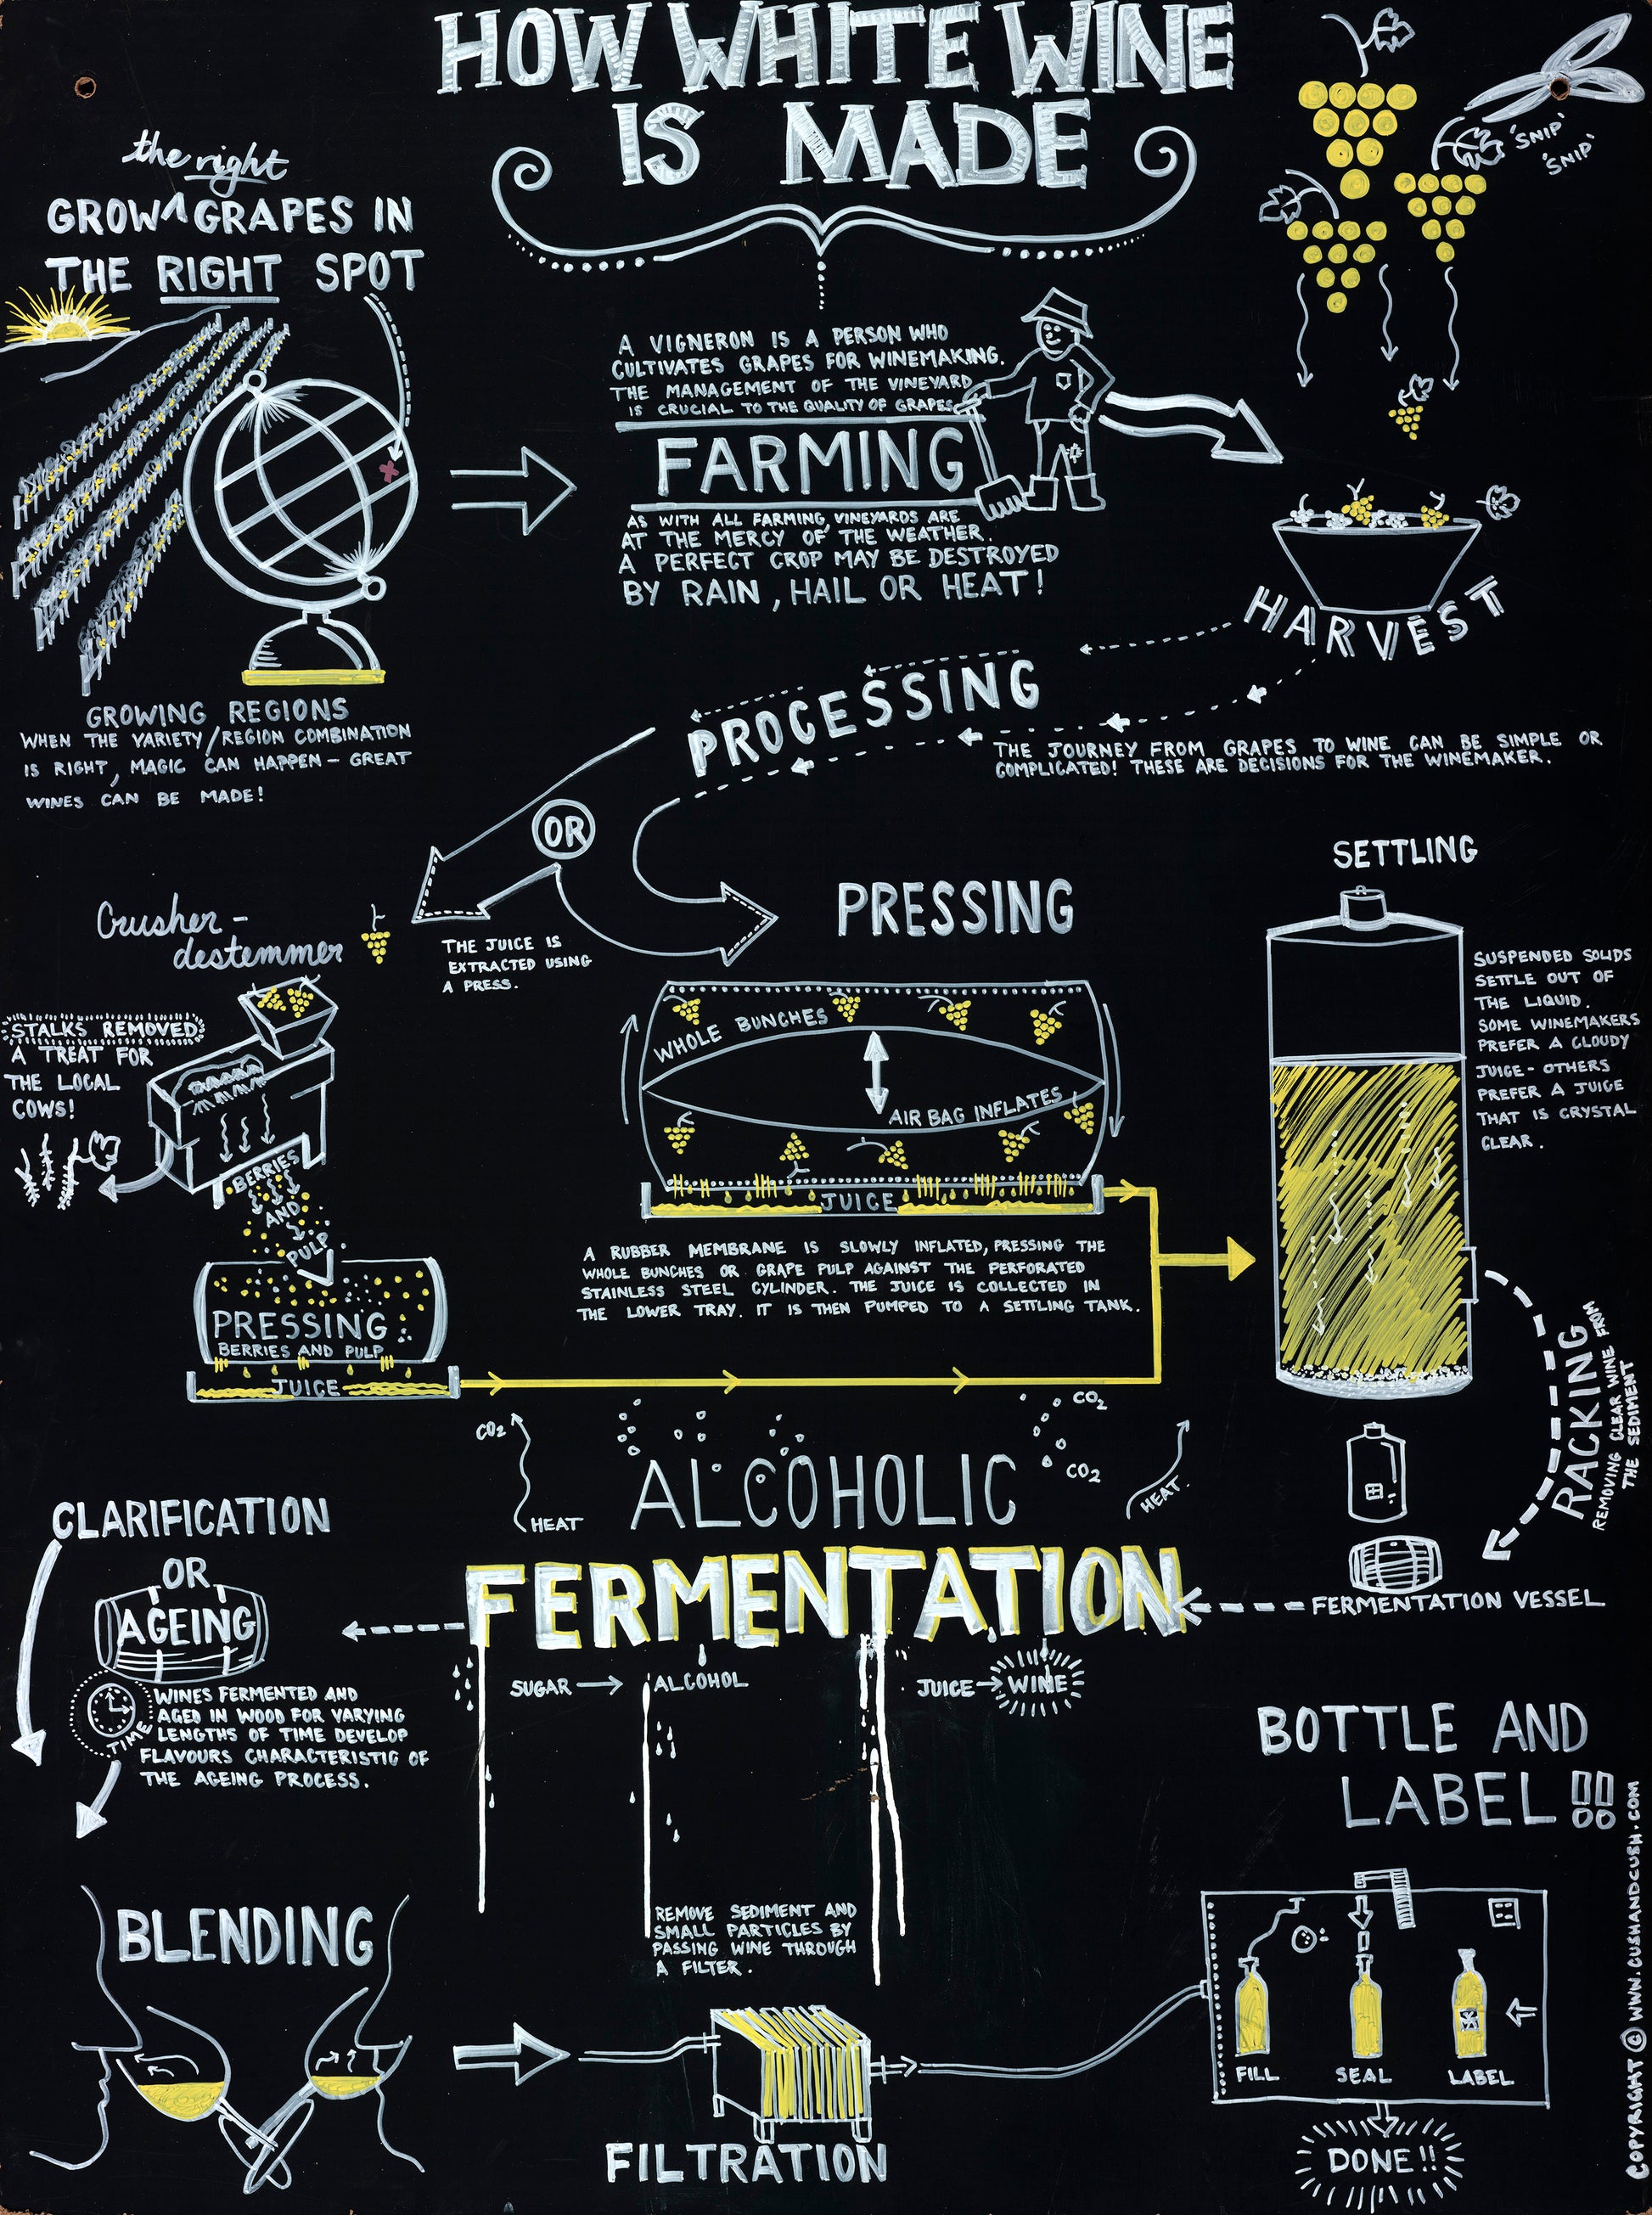 HOW WHITE WINE
IS MADE
the right
GROW ^ GRAPES IN
THE RIGHT SPOT
'SNIP'
'SNIP'
A VIGNERON IS A PERSON WHO
CULTIVATES GRAPES FOR WINEMAKING.
THE MANAGEMENT OF THE VINEYARD
IS CRUCIAL TO THE QUALITY OF GRAPES
FARMING
AS WITH ALL FARMING, VINEYARDS ARE
AT THE MERCY OF THE WEATHER.
A PERFECT CROP MAY BE DESTROYED
BY RAIN, HAIL OR HEAT!
HARVEST
GROWING REGIONS
WHEN THE VARIETY/REGION COMBINATION
IS RIGHT, MAGIC CAN HAPPEN - GREAT
WINES CAN BE MADE!
PROCESSING
THE JOURNEY FROM GRAPES TO WINE CAN BE SIMPLE OR
COMPLICATED! THESE ARE DECISIONS FOR THE WINEMAKER.
OR
Crusher -
destemmer
THE JUICE IS
EXTRACTED USING
A PRESS.
STALKS REMOVED
A TREAT FOR
THE LOCAL
COWS!
BERRIES
AND
PULP
PRESSING
BERRIES AND PULP
JUICE
PRESSING
WHOLE BUNCHES
AIR BAG INFLATES
JUICE
A RUBBER MEMBRANE IS SLOWLY INFLATED, PRESSING THE
WHOLE BUNCHES OR GRAPE PULP AGAINST THE PERFORATED
STAINLESS STEEL CYLINDER. THE JUICE IS COLLECTED IN
THE LOWER TRAY. IT IS THEN PUMPED TO A SETTLING TANK.
SETTLING
SUSPENDED SOLIDS
SETTLE OUT OF
THE LIQUID.
SOME WINEMAKERS
PREFER A CLOUDY
JUICE - OTHERS
PREFER A JUICE
THAT IS CRYSTAL
CLEAR.
RACKING
REMOVING CLEAR WINE FROM
THE SEDIMENT
FERMENTATION VESSEL
CO2
HEAT
CO2
CO2
HEAT
ALCOHOLIC
FERMENTATION
SUGAR → ALCOHOL
JUICE → WINE
CLARIFICATION
OR
AGEING
TIME
WINES FERMENTED AND
AGED IN WOOD FOR VARYING
LENGTHS OF TIME DEVELOP
FLAVOURS CHARACTERISTIC OF
THE AGEING PROCESS.
BLENDING
REMOVE SEDIMENT AND
SMALL PARTICLES BY
PASSING WINE THROUGH
A FILTER.
FILTRATION
BOTTLE AND
LABEL!!
FILL
SEAL
LABEL
DONE!!
COPYRIGHT © WWW.CUSHANDCUSH.COM